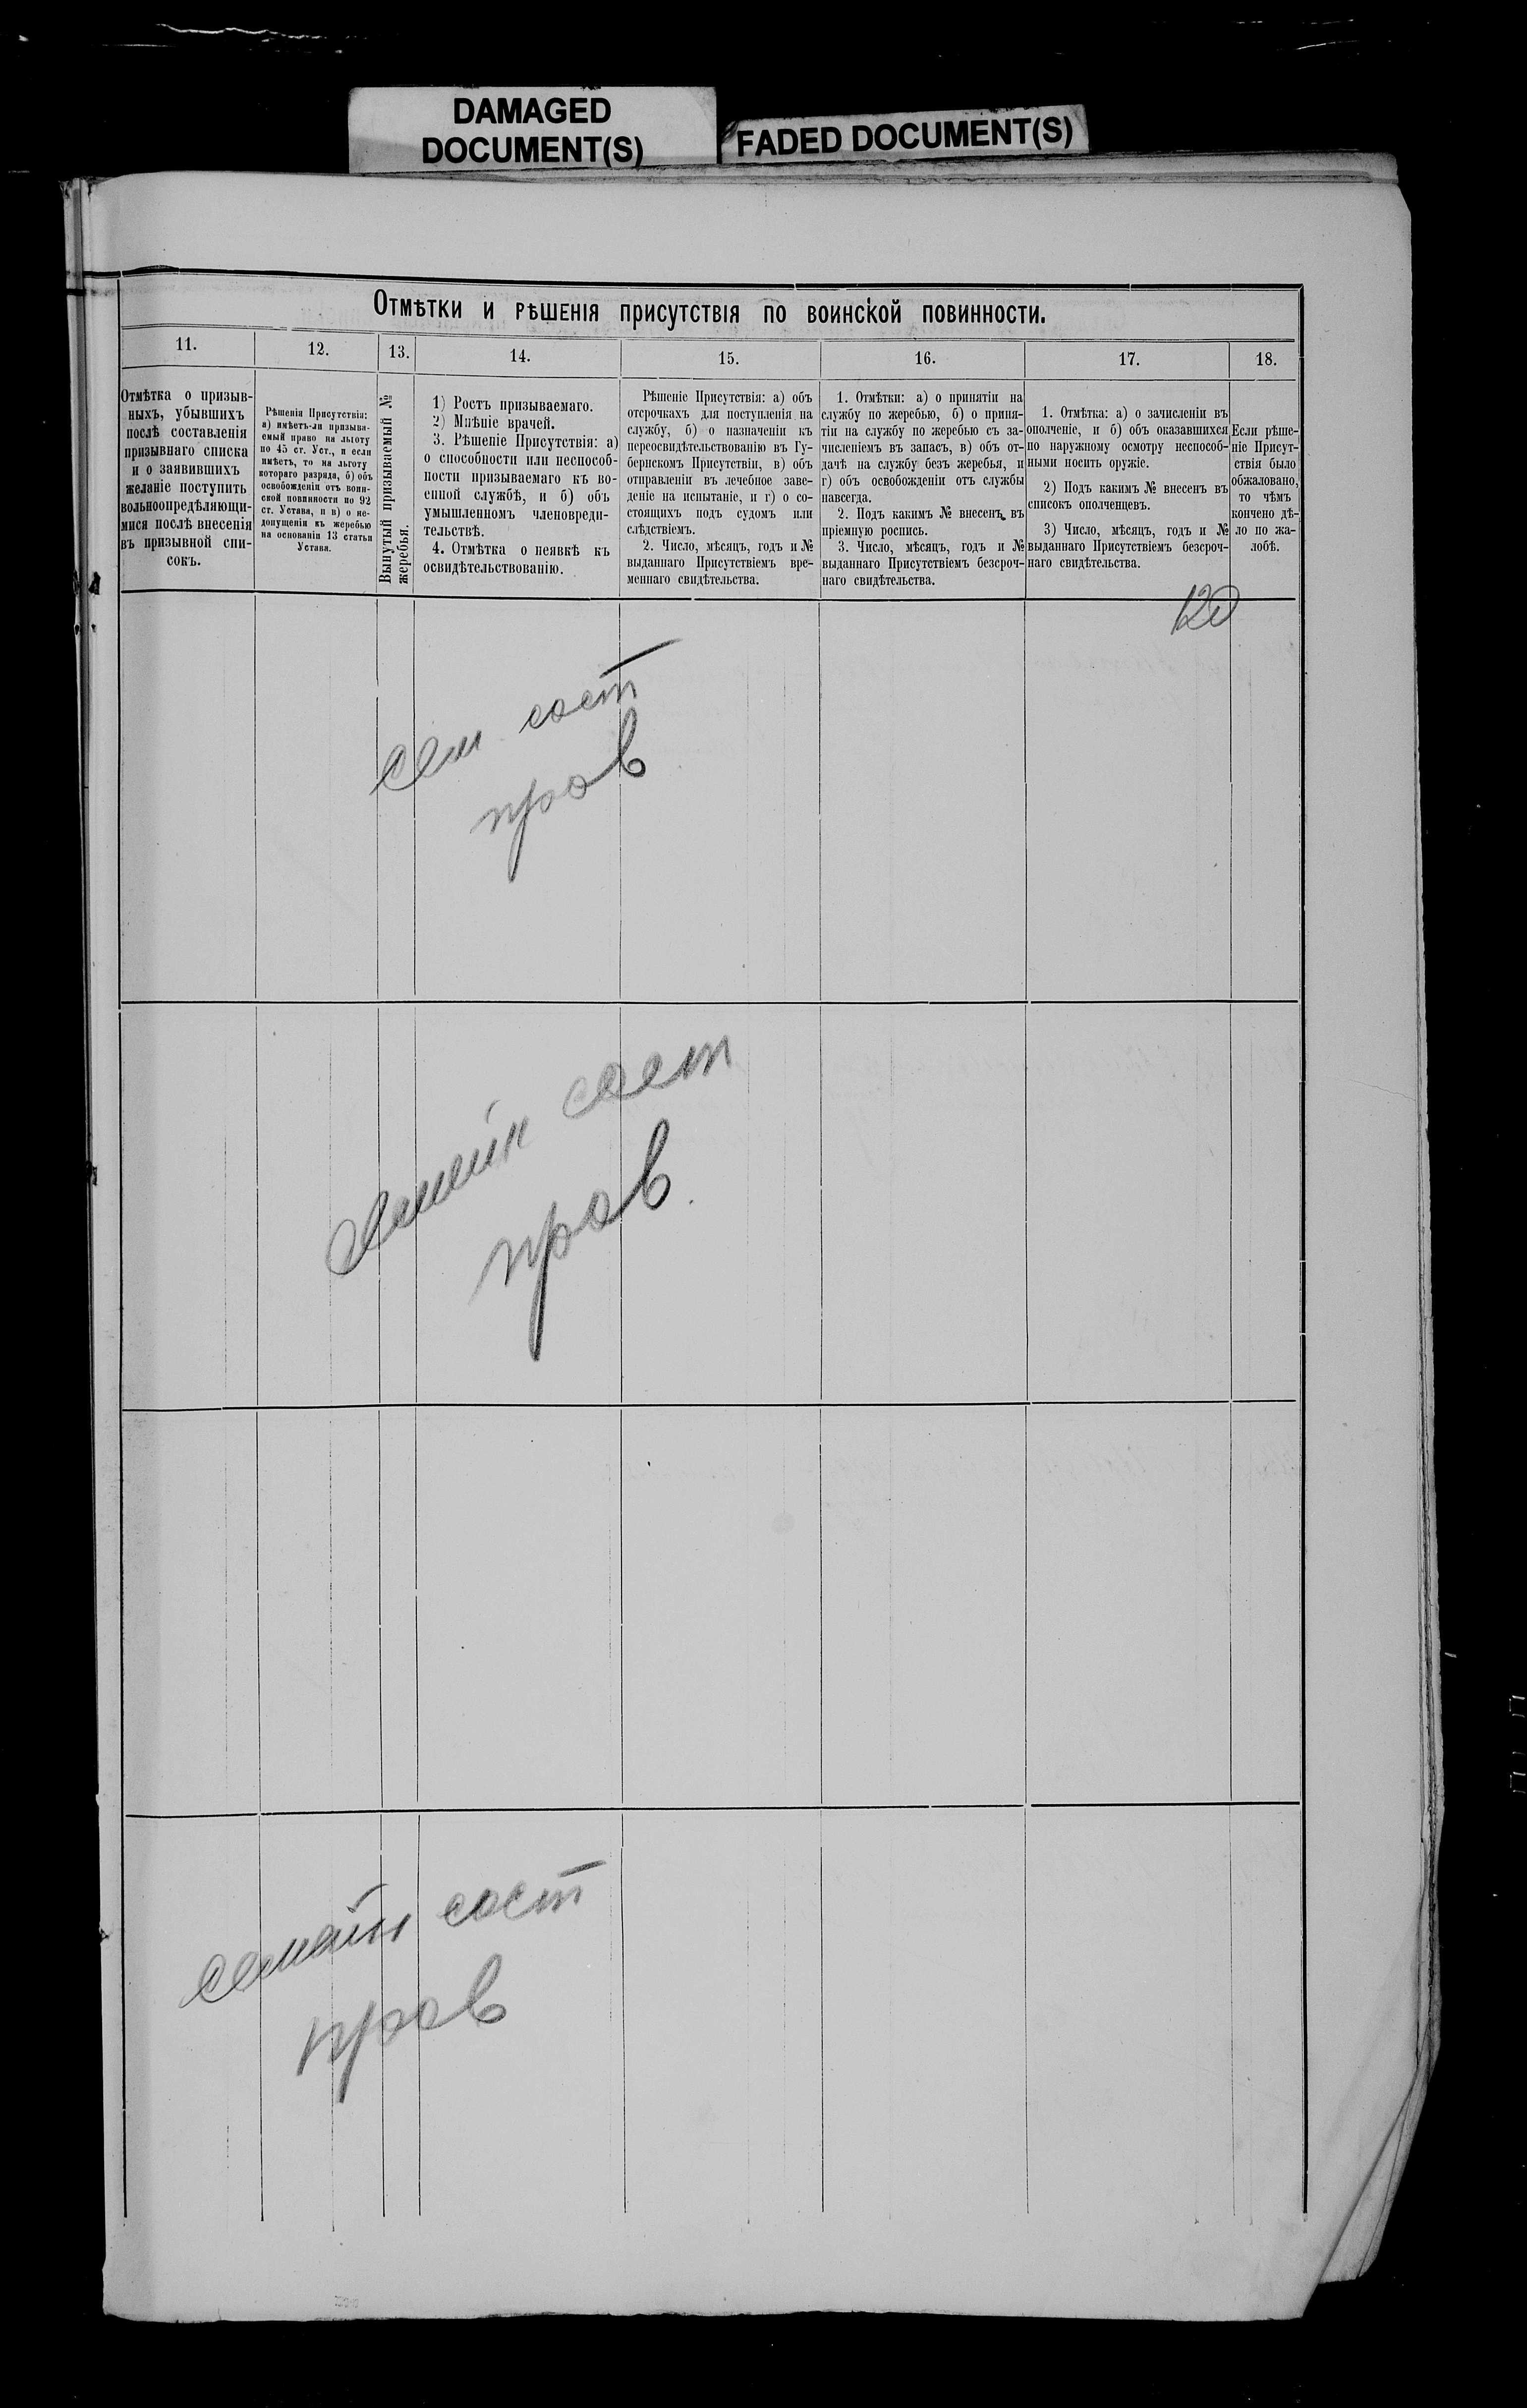 DAMAGED
DOCUMENT(S)
FADED DOCUMENT(S)
Отмѣтки и рѣшенія присутствія по воинской повинности.
11.
12.
13.
14.
15.
16.
17.
18.
Отмѣтка о призыв-
ныхъ, убывшихъ
послѣ составленія
призывнаго списка
и о заявившихъ
желаніе поступить
вольноопредѣляющи-
мися послѣ внесенія
въ призывной спи-
сокъ.
Рѣшенія Присутствія:
а) имѣетъ-ли призыва-
емый право на льготу
по 45 ст. Уст., и если
имѣетъ, то на льготу
котораго разряда, б) объ
освобожденіи отъ воин-
ской повинности по 92
ст. Устава, и в) о не-
допущеніи къ жеребью
на основаніи 13 статьи
Устава.
Вынутый призываемый №
жеребья.
1) Ростъ призываемаго.
2) Мнѣніе врачей.
3. Рѣшеніе Присутствія: а)
о способности или неспособ-
ности призываемаго къ во-
енной службѣ, и б) объ
умышленномъ членовреди-
тельствѣ.
4. Отмѣтка о неявкѣ къ
освидѣтельствованію.
Рѣшеніе Присутствія: а) объ
отсрочкахъ для поступленія на
службу, б) о назначеніи къ
переосвидѣтельствованію въ Гу-
бернскомъ Присутствіи, в) объ
отправленіи въ лечебное заве-
деніе на испытаніе, и г) о со-
стоящихъ подъ судомъ или
слѣдствіемъ.
2. Число, мѣсяцъ, годъ и №
выданнаго Присутствіемъ вре-
меннаго свидѣтельства.
1. Отмѣтки: а) о принятіи на
службу по жеребью, б) о приня-
тіи на службу по жеребью съ за-
численіемъ въ запасъ, в) объ от-
дачѣ на службу безъ жеребья, и
г) объ освобожденіи отъ службы
навсегда.
2. Подъ какимъ № внесенъ въ
пріемную роспись.
3. Число, мѣсяцъ, годъ и №
выданнаго Присутствіемъ безсроч-
наго свидѣтельства.
1. Отмѣтка: а) о зачисленіи въ
ополченіе, и б) объ оказавшихся
по наружному осмотру неспособ-
ными носить оружіе.
2) Подъ какимъ № внесенъ въ
списокъ ополченцевъ.
3) Число, мѣсяцъ, годъ и №
выданнаго Присутствіемъ безсроч-
наго свидѣтельства.
Если рѣше-
ніе Присут-
ствія было
обжаловано,
то чѣмъ
кончено дѣ-
ло по жа-
лобѣ.
120
сем сост
пров
семейн сост
пров.
семейн сост
пров